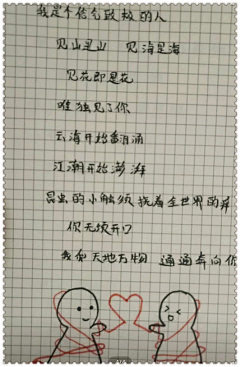 我是个俗气致极的人
见山是山 见海是海
见花即是花
唯独见了你
云海开始翻涌
江潮开始澎湃
昆虫的小触须挠着全世界的痒
你无须开口
我和天地万物 通通奔向你